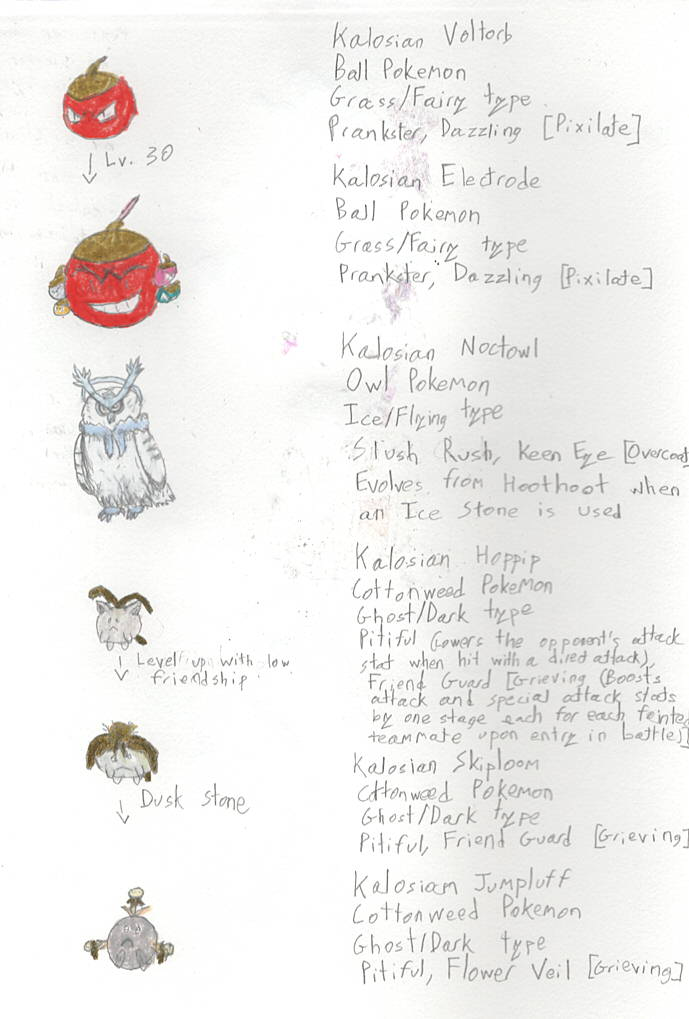 Kalosian Voltorb
Ball Pokemon
Grass/Fairy type
Prankster, Dazzling [Pixilate]
Lv. 30
Kalosian Electrode
Ball Pokemon
Grass/Fairy type
Prankster, Dazzling [Pixilate]
Kalosian Noctowl
Owl Pokemon
Ice/Flying type
Slush Rush, Keen Eye [Overcoat]
Evolves from Hoothoot when
an Ice Stone is used
Kalosian Hoppip
Cottonweed Pokemon
Ghost/Dark type
Pitiful (Lowers the opponent's attack
stat when hit with a direct attack),
Friend Guard [Grieving (Boosts
attack and special attack stats
by one stage each for each fainted
teammate upon entry in battle)]
Level up with low
friendship
Kalosian Skiploom
Cottonweed Pokemon
Ghost/Dark type
Pitiful, Friend Guard [Grieving]
Dusk stone
Kalosian Jumpluff
Cottonweed Pokemon
Ghost/Dark type
Pitiful, Flower Veil [Grieving]